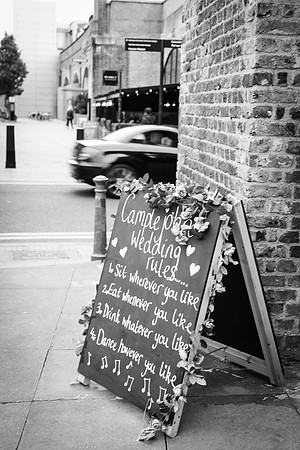 Camdenphoto
wedding
rules....
1. Sit wherever you like
2. Eat whenever you like
3. Drink whatever you like
4. Dance however you like